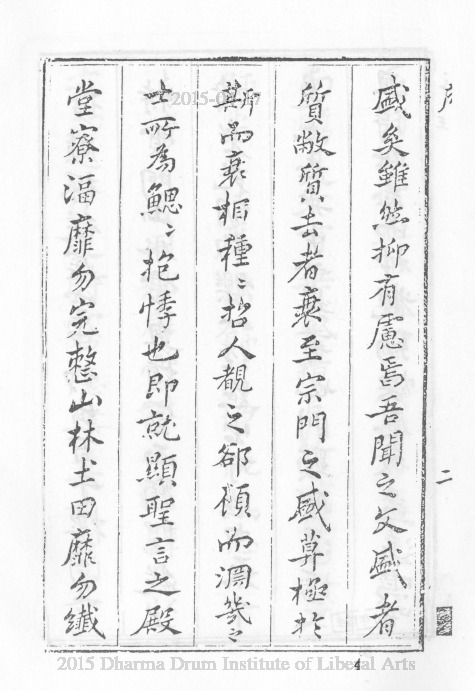 序
盛矣雖然抑有慮焉吾聞之文盛者
質敝質去者衰至宗門之盛莫極於
斯而衰相種〻哲人覩之郤顧而淵㡬之
士所為鰓〻抱悸也即就顯聖言之殿
堂寮湢靡勿完整山林土田靡勿纖
二
4
2015 Dharma Drum Institute of Liberal Arts